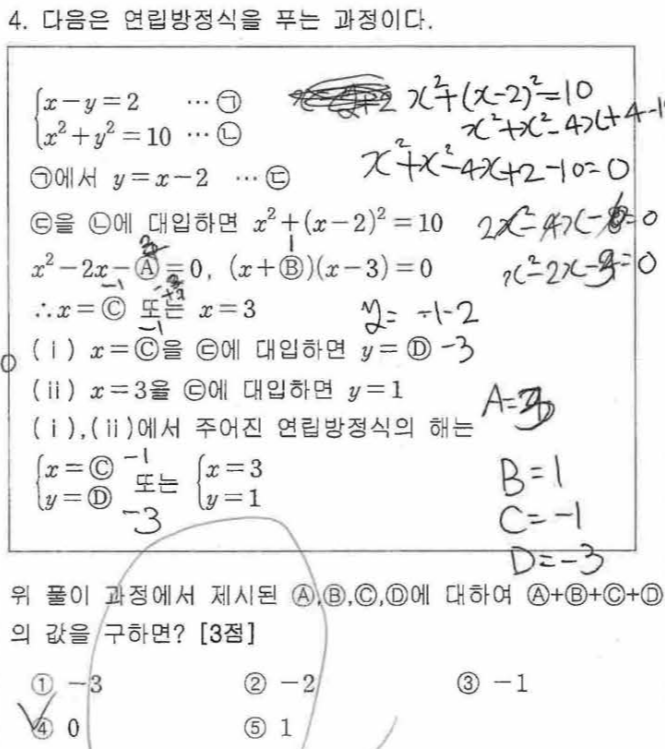 4. 다음은 연립방정식을 푸는 과정이다.
x-y=2 …㉠
x²+y²=10 …㉡
x²+(x-2)²=10
x²+x²-4x+4-1
㉠에서 y=x-2 …㉢
x²+x²-4x+2-10=0
㉢을 ㉡에 대입하면 x²+(x-2)²=10
2x²-4x- =0
x²-2x-Ⓐ=0, (x+Ⓑ)(x-3)=0
1
x²-2x-3=0
-1
∴x=Ⓒ 또는 x=3
-1
y=-1-2
(ⅰ) x=Ⓒ을 ㉢에 대입하면 y=Ⓓ -3
(ⅱ) x=3을 ㉢에 대입하면 y=1
A=3
(ⅰ),(ⅱ)에서 주어진 연립방정식의 해는
x=Ⓒ -1 또는 x=3
y=Ⓓ -3 y=1
B=1
C=-1
D=-3
위 풀이 과정에서 제시된 Ⓐ,Ⓑ,Ⓒ,Ⓓ에 대하여 Ⓐ+Ⓑ+Ⓒ+Ⓓ
의 값을 구하면? [3점]
① -3 ② -2 ③ -1
④ 0 ⑤ 1